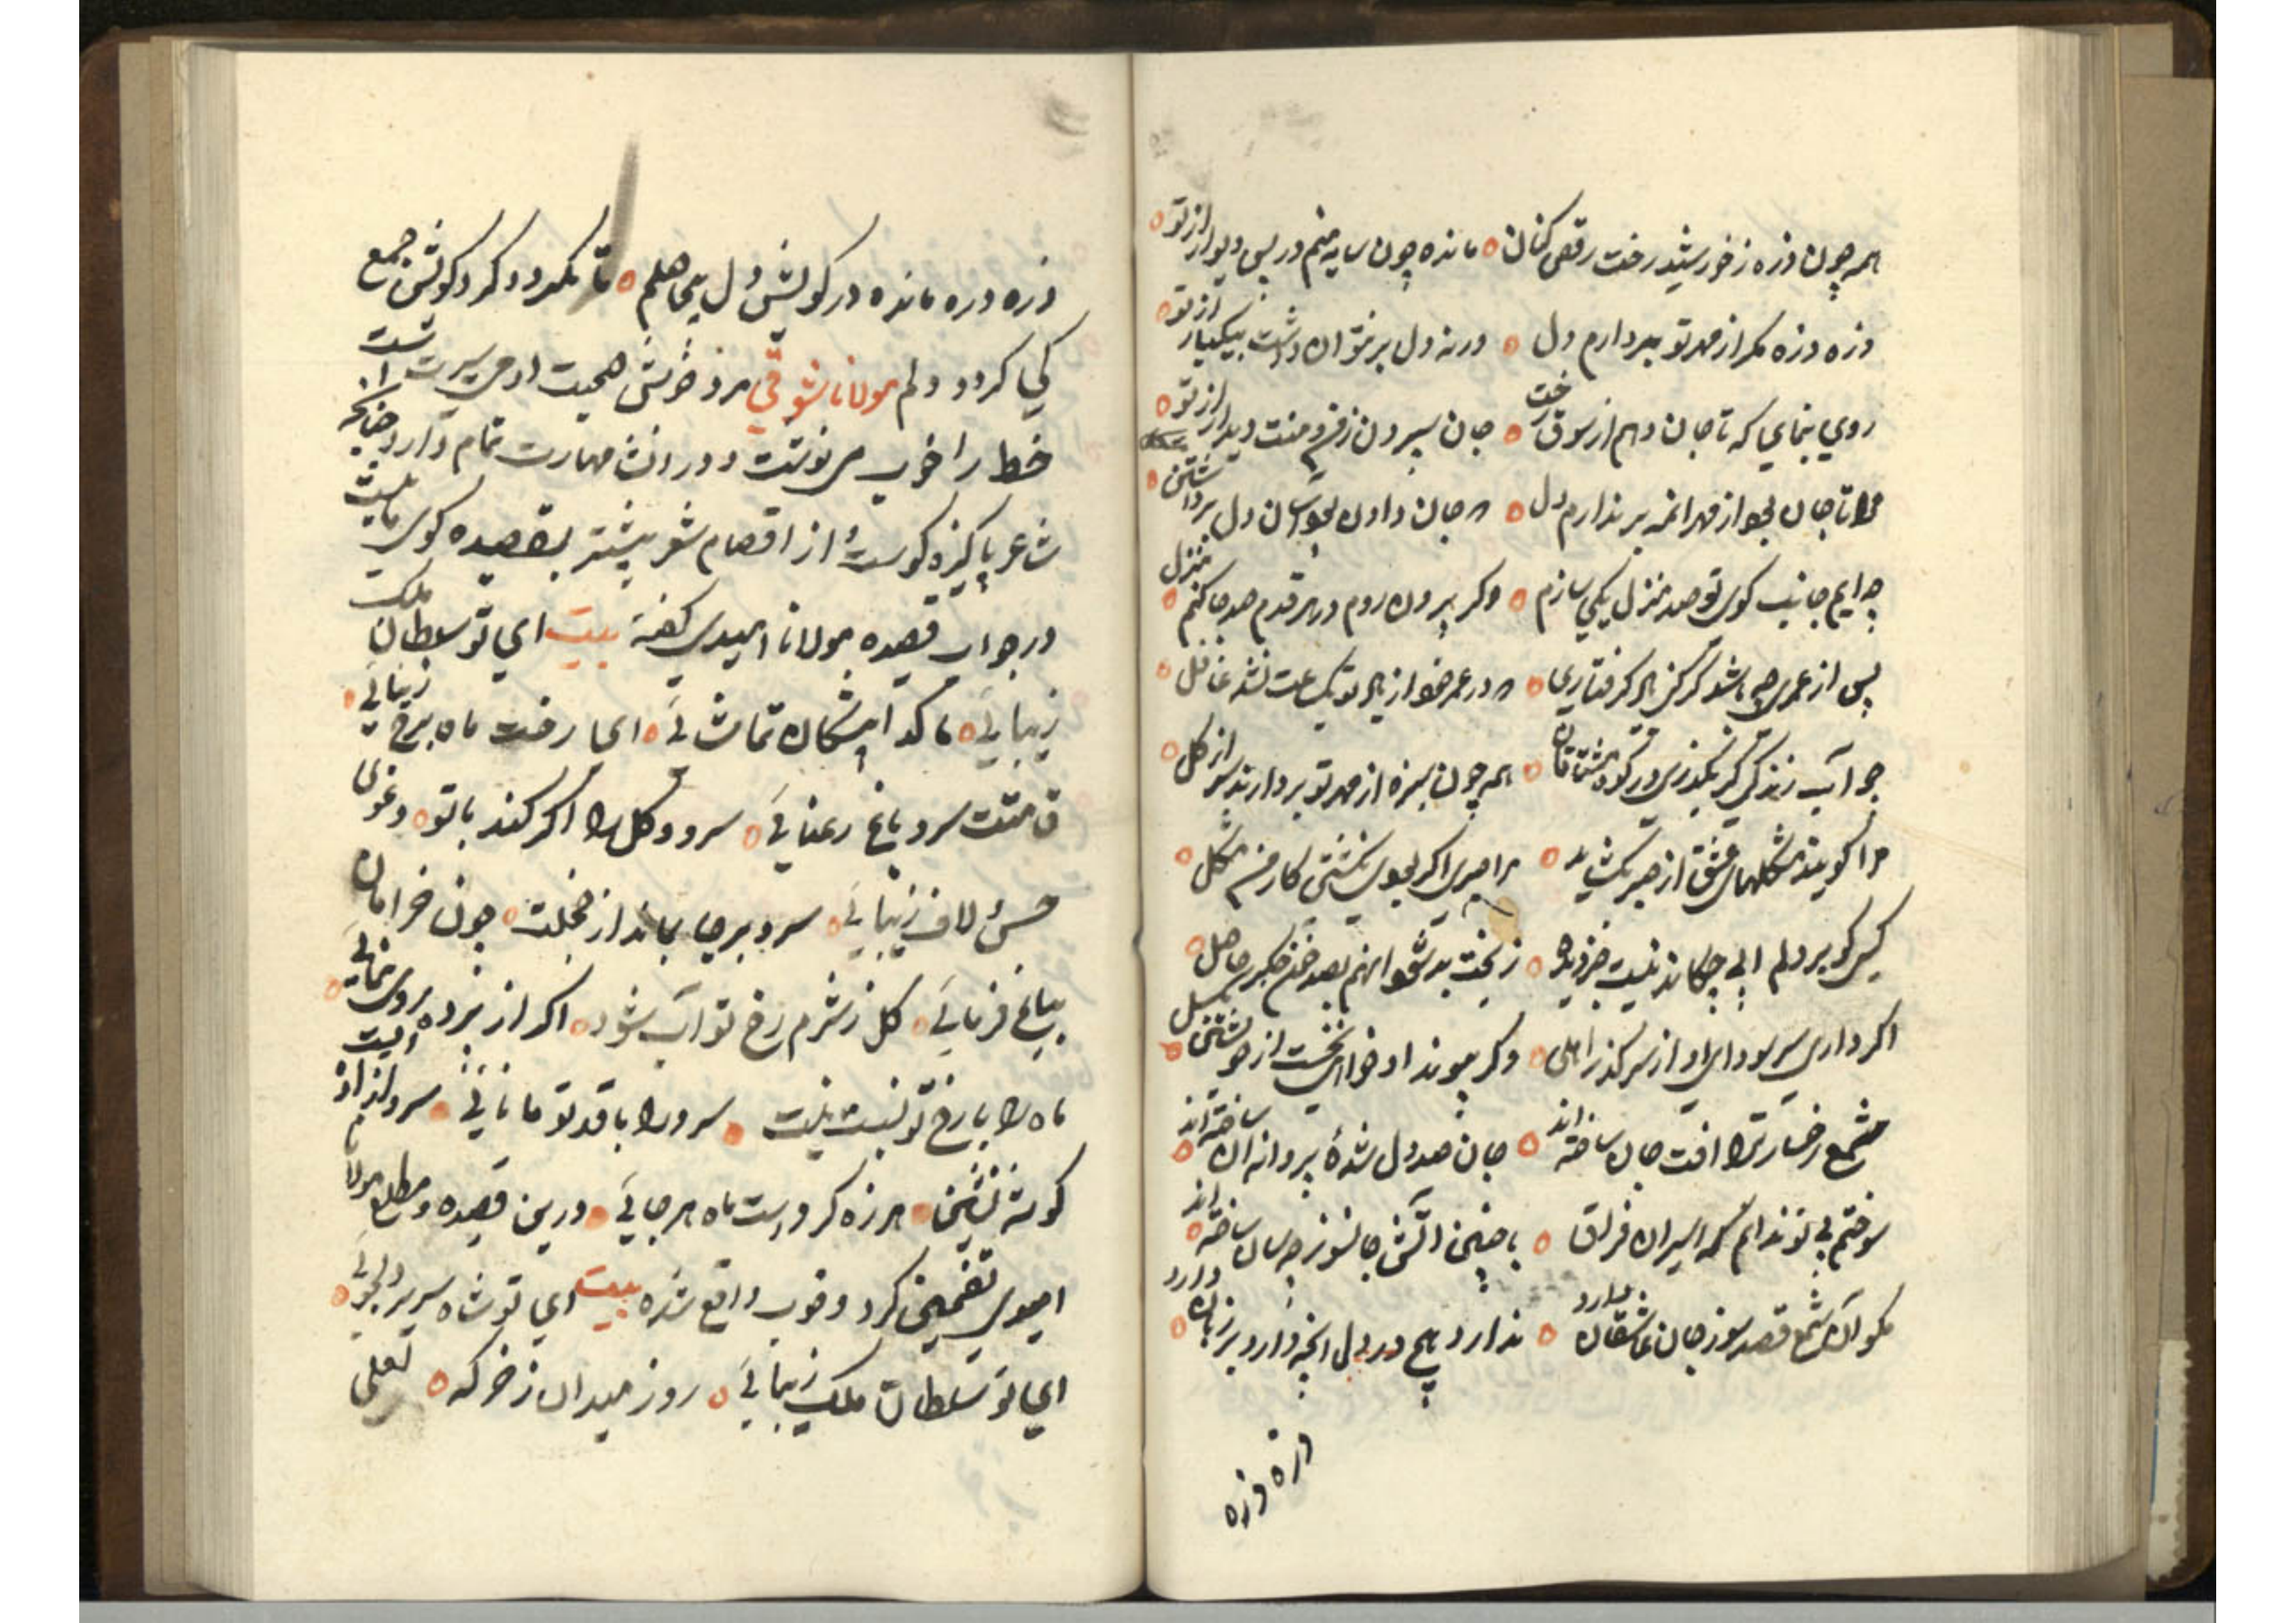 همه چون ذره ز خورشید رخت رقص کنان مانده چون سایه منم در پس دیوار از تو
ذره ذره مکر از مهر تو بردارم دل ورنه دل بر نتوان داشت بیکبار از تو
روی بنمای که تا جان دهم از شوق رخت جان سپردن ز من و منت دیدار از تو
تا جان بود از مهر بر ندارم دل جان دادن بود آسان دل برداشتن
چو ایم جانب کوی تو صد منزل یکی سازم وکر بیرون روم در هر قدم صد جا کنم منزل
پس از عمری چه باشد کر کنی یاد کرفتاری در عمر خود از یاد تو یک ساعت نشد غافل
چو آب زندکی کر بکذری در کوه مشتاقان همه چون سبزه از مهر تو بردارند سر از کل
مرا کویند مشکلهای عشق از صبر بکشاید مرا صبری اکر بودی نکشتی کار من مشکل
کسی کو بر دلم ابی چکاند نیست جز دیده ز بخت بد شود انهم بصد خون جکر حاصل
اکر داری سر سودای او از سر کذر اهلی وکر پیوند او خواهی نخست از خویشتن بکسل
شمع رخسار ترا افت جان ساخته اند جان صد دل شده پروانه ان ساخته اند
سوختم بی تو ندانم که اسیران فراق با چنین اتش جانسوز چه سان ساخته اند
مکو آن شمع قصد سوز جان عاشقان دارد ندارد هیچ در دل انچه دارد بر زبان دارد
ذره ذره
ذره ذره مانده در کویش دل بیحاصلم تا نکردد کرد کویش جمع
کی کردد دلم مولانا شوقی مرد خوش صحبت ادمی سیرت است
خط را خوب می نوشت و در انشا مهارت تمام دارد چنانچه
شاعر پاکیزه کوست از اقصام شعر بیشتر بقصیده کوی مایلست
در جواب قصیده مولانا امیدی کفته بیت ای تو سلطان ملک
زیبایی ما کدا پیشکان تماشائی ای رخت ماه برج زیبائی
قامتت سرو باغ رعنایی سرو و کل را اکر کند با تو دعوی
حسن لاف زیبایی سرو بر جا بماند از خجلت چون خرامان
بباغ فرمایی کل ز شرم رخ تو آب شود اکر از پرده روی بنمایی
ماه را با رخ تو نسبت نیست سرو را با قد تو مانایی سرو ازاده ایست
کوشه نشین هرزه کردیست ماه هر جایی درین قصیده مطلع مولانا
امیدی تضمین کرد و خوب واقع شده بیت ای تو شاه سریر دلجویی
ای تو سلطان ملک زیبایی روز میدان ز خر که لعلی